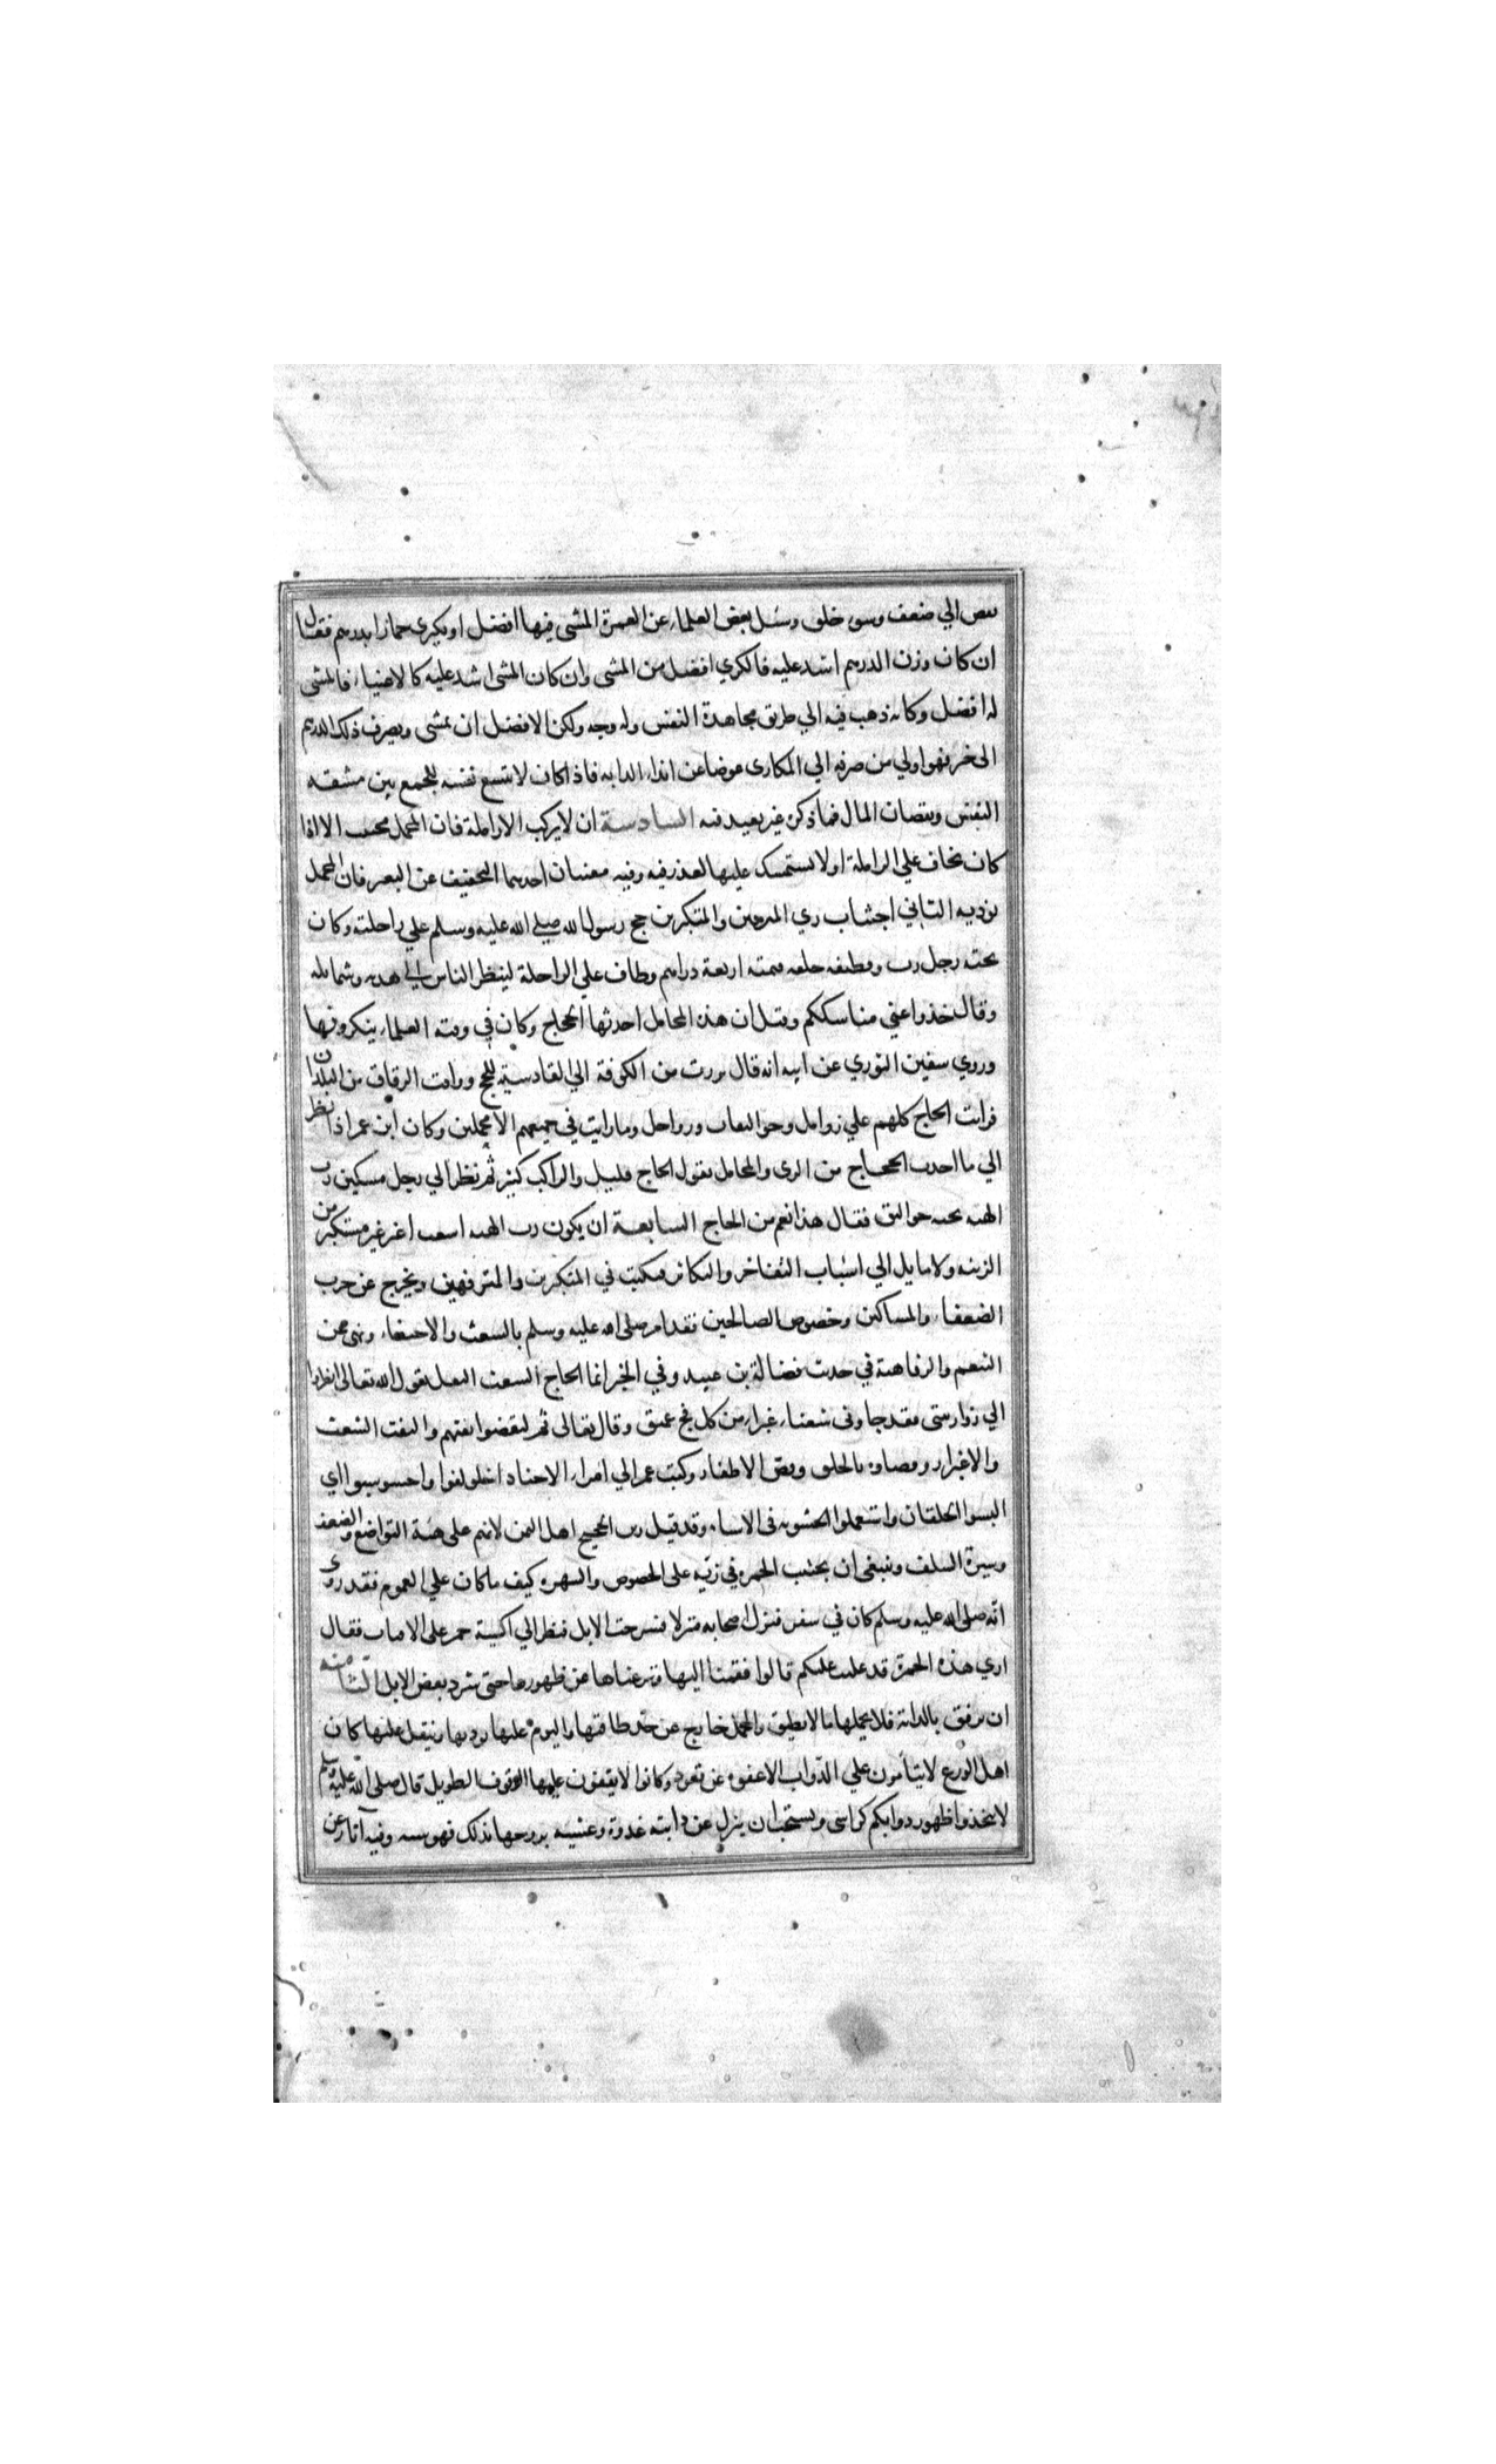 الي ضعف وسو خلق وسئل بعض العلماء عن العمرة المشى فيها افضل او يكرى حمارا بدرهم فقال
ان كان وزن الدرهم اشد عليه فالكري افضل من المشى وان كان المشى اشد عليه كالاغنياء فالمشى
له افضل وكانه ذهب فيه الي طريق مجاهدة النفس وله وجه ولكن الافضل ان يمشى ويصرف ذلك الدرهم
الى خير فهو اولي من صرفه الي المكارى عوضا عن ابذاء الدابه فاذا كان لا تتسع نفسه للجمع بين مشقه
النفس ونقصان المال فما ذكر غير بعيد فيه السادسة ان لا يركب الا زاملة فان المحمل الا اذا
كان يخاف علي الزاملة او لا يستمسك عليها لعذر فيه وفيه معنيان احدهما التخفيف عن البعير فان المحمل
يوذيه الثاني اجتناب زي المترفين والمتكبرين حج رسول الله صلي الله عليه وسلم علي راحلته وكان
تحته رجل رث وقطيفه خلقه قيمته اربعة دراهم وطاف علي الراحلة لينظر الناس الي هديه وشمايله
وقال خذوا عني مناسككم وقيل ان هذه المحامل احدثها الحجاج وكان في وقته العلماء ينكرونها
وروي سفين الثوري عن ابيه انه قال برزت من الكوفة الي القادسيه للحج ووافت الرفاق من البلدان
فرايت الحاج كلهم علي زوامل وجوالقات ورواحل وما رايت في جميعهم الا محملين وكان ابن عمر اذا نظر
الي ما احدث الحجاج من الزى والمحامل يقول الحاج قليل والراكب كثير ثم نظر الي رجل مسكين رث
الهيه تحته جوالق فقال هذا نعم من الحاج السابعة ان يكون رث الهيه اشعث اغبر غير مستكبر من
الزينه ولا مايل الي اسباب التفاخر والتكاثر فيكتب في المتكبرين والمترفهين ويخرج عن حزب
الضعفاء والمساكين وخصوص الصالحين فقد امر صلى الله عليه وسلم بالشعث والاحتفاء ونهى عن
التنعم والرفاهية في حديث فضالة بن عبيد وفي الخبر انما الحاج الشعث التفل يقول الله تعالى انظروا
الي زوار بيتى فقد جاونى شعثاء غبراء من كل فج عميق وقال تعالى ثم ليقضوا تفثهم والتفث الشعث
والاغبرار وقضاوه بالحلق وقص الاظفار وكتب عمر الي امراء الاجناد اخلولقوا واخشوشنوا اي
البسوا الخلقان واستعملوا الخشونه فى الاشياء وقد قيل زين الحجيج اهل اليمن لانهم على هيئة التواضع والضعف
وسيرة السلف وينبغي ان يجتنب الحمره في زيه على الخصوص والشهره كيف ما كان علي العموم فقد روى
انه صلى الله عليه وسلم كان في سفر فنزل اصحابه منزلا فسرحت الابل فنظر الي اكسية حمر على الاقتاب فقال
اري هذه الحمرة قد غلبت عليكم قالوا فقمنا اليها ونزعناها عن ظهورها حتى شرد بعض الابل الثامنه
ان يرفق بالدابة فلا يحملها ما لا يطيق والمحمل خارج عن حد طاقتها والنوم عليها يوذيها ويثقل عليها كان
اهل الورع لا ينامون علي الدواب الا غفوه عن قعود وكانوا لا يقفون عليها الوقوف الطويل قال صلى الله عليه وسلم
لا تتخذوا ظهور دوابكم كراسى ويستحب ان ينزل عن دابته غدوة وعشيه يروحها بذلك فهو سنه وفيه اثار عن